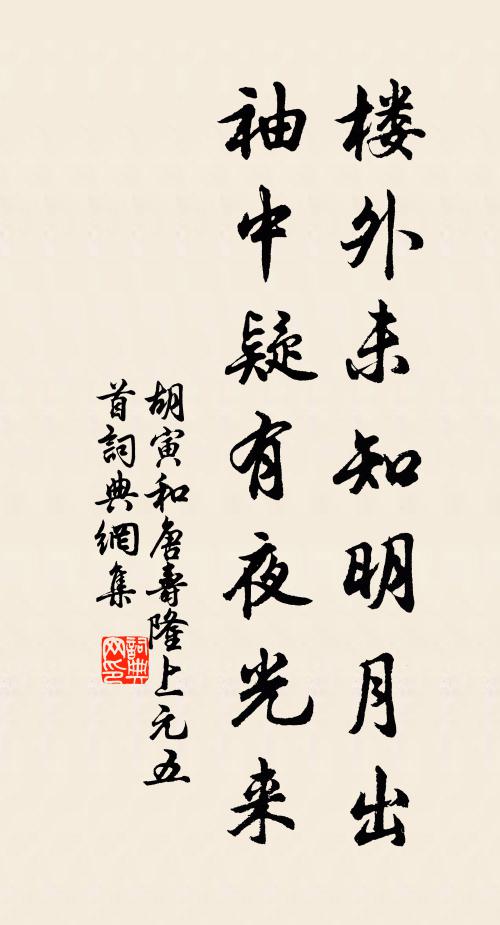 楼外未知明月出
袖中疑有夜光来
胡寅和唐壽隆上元五
首詞典網集
詞典网印